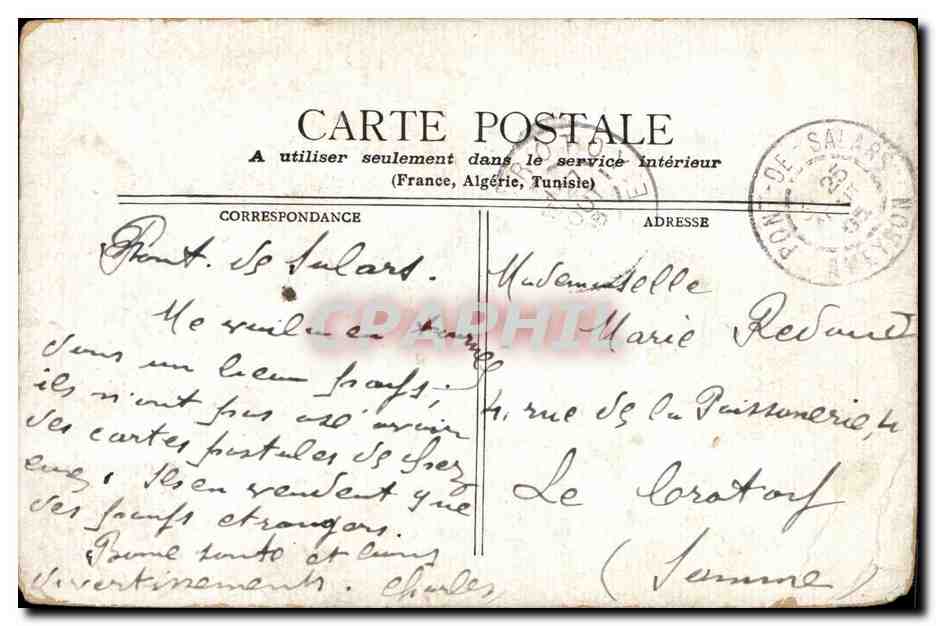 CARTE POSTALE
A utiliser seulement dans le service intérieur
(France, Algérie, Tunisie)
CORRESPONDANCE
Pont. de Salars.
Me voilà en tournée
dans un lieu
ils n'ont pas osé avoir
des cartes postales de chez
eux. Ils en vendent que
des étrangers.
Bonne santé et bons
divertissements. Charles
ADRESSE
Mademoiselle
Marie Redout
4, rue de la Poissonerie, 4
Le Crotoy
(Somme)
PONT-DE-SALARS AVEYRON
25
CPAPHIL